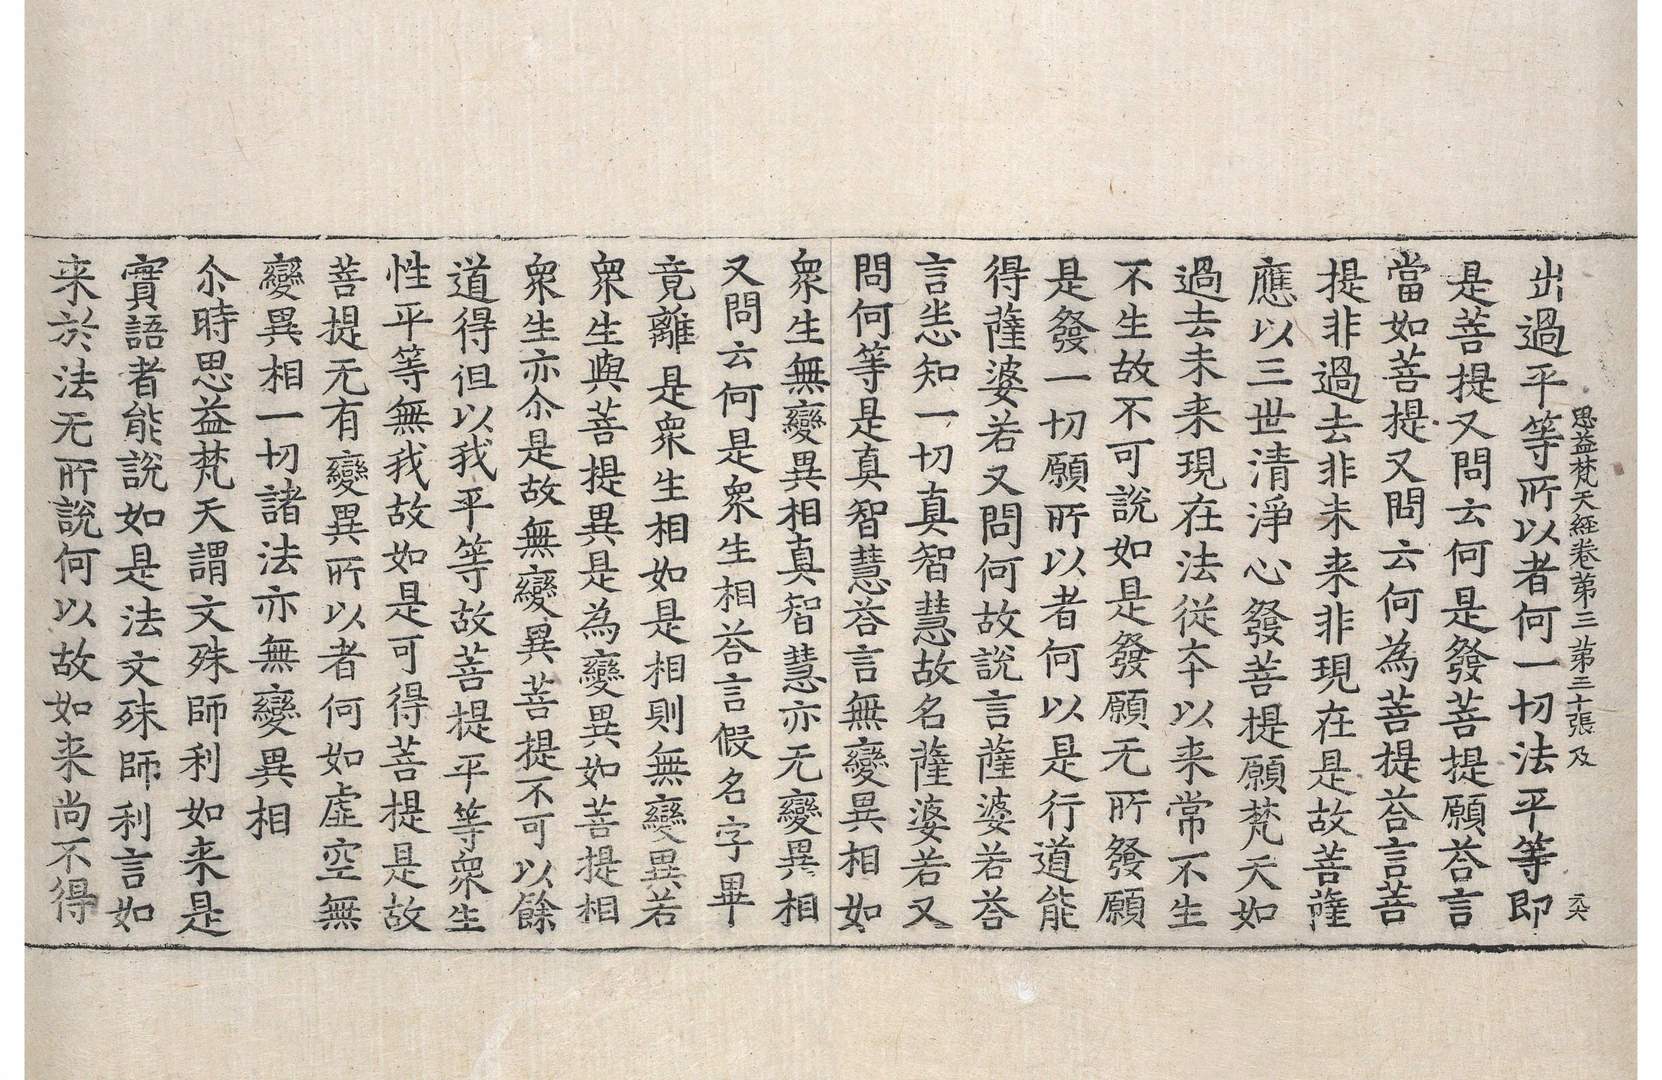 思益梵天經卷第三 第二十張 及
出過平等所以者何一切法平等即
是菩提又問云何是發菩提願荅言
當如菩提又問云何為菩提荅言菩
提非過去非未来非現在是故菩薩
應以三世清淨心發菩提願梵天如
過去未来現在法從夲以来常不生
不生故不可說如是發願无所發願
是發一切願所以者何以是行道能
得薩婆若又問何故說言薩婆若荅
言悉知一切真智慧故名薩婆若又
問何等是真智慧荅言無變異相如
衆生無變異相真智慧亦无變異相
又問云何是衆生相荅言假名字畢
竟離是衆生相如是相則無變異若
衆生與菩提異是為變異如菩提相
衆生亦尒是故無變異菩提不可以餘
道得但以我平等故菩提平等衆生
性平等無我故如是可得菩提是故
菩提无有變異所以者何如虛空無
變異相一切諸法亦無變異相
尒時思益梵天謂文殊師利如来是
實語者能說如是法文殊師利言如
来於法无所說何以故如来尚不得